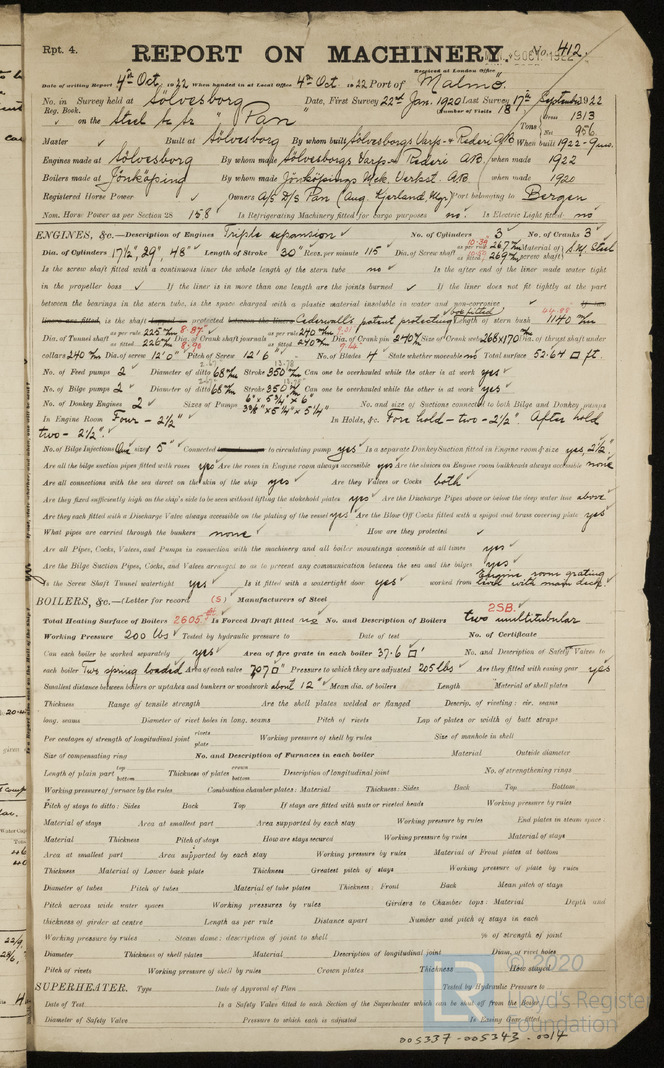 Rpt. 4.
REPORT ON MACHINERY. No. 412
Received at London Office
Date of writing Report 4th Oct. 1922 When handed in at Local Office 4th Oct. 1922 Port of Malmö.
No. in Survey held at Sölvesborg Date, First Survey 22nd Jan. 1920 Last Survey 17th 1922
Reg. Book. (Number of Visits 18
on the Steel "Pan" Tons Gross 1313
Net 956
Master Built at Sölvesborg By whom built Sölvesborgs Varfs- Rederi A/B When built 1922-9
Engines made at Sölvesborg By whom made Sölvesborgs Varfs- Rederi A/B. when made 1922
Boilers made at Jönköping By whom made Jönköpings Mek. Verkst. A/B. when made 1920
Registered Horse Power Owners A/S D/S Pan (Aug. Kjerland Mgr.) Port belonging to Bergen
Nom. Horse Power as per Section 28 158 Is Refrigerating Machinery fitted for cargo purposes no. Is Electric Light fitted no
ENGINES, &c.—Description of Engines Triple expansion No. of Cylinders 3 No. of Cranks 3
Dia. of Cylinders 17½", 29", 48" Length of Stroke 30" Revs. per minute 115 Dia. of Screw shaft as per rule 267 as fitted 269 Material of screw shaft S.M. Steel
Is the screw shaft fitted with a continuous liner the whole length of the stern tube no Is the after end of the liner made water tight
in the propeller boss If the liner is in more than one length are the joints burned If the liner does not fit tightly at the part
between the bearings in the stern tube, is the space charged with a plastic material insoluble in water and non-corrosive If two
liners are fitted, is the shaft lapped or protected between the liners Cederwalls patent protecting box fitted Length of stern bush 1140
Dia. of Tunnel shaft as per rule 225 as fitted 226 Dia. of Crank shaft journals as per rule 240 as fitted 240 Dia. of Crank pin 240 Size of Crank webs 268x170 Dia. of thrust shaft under
collars 240 Dia. of screw 12'0" Pitch of Screw 12'6" No. of Blades 4 State whether moveable no Total surface 52.64 □ ft.
No. of Feed pumps 2 Diameter of ditto 68 Stroke 350 Can one be overhauled while the other is at work yes
No. of Bilge pumps 2 Diameter of ditto 68 Stroke 350 Can one be overhauled while the other is at work yes
No. of Donkey Engines 2 Sizes of Pumps 6" x 5¾" x 6" No. and size of Suctions connected to both Bilge and Donkey pumps
In Engine Room Four - 2½" In Holds, &c. Fore hold - two - 2½". After hold
two - 2½".
No. of Bilge Injections One sizes 5" Connected to circulating pump yes Is a separate Donkey Suction fitted in Engine room & size yes, 2½"
Are all the bilge suction pipes fitted with roses yes Are the roses in Engine room always accessible yes Are the sluices on Engine room bulkheads always accessible none
Are all connections with the sea direct on the skin of the ship yes Are they Valves or Cocks both
Are they fixed sufficiently high on the ship's side to be seen without lifting the stokehold plates yes Are the Discharge Pipes above or below the deep water line above
Are they each fitted with a Discharge Valve always accessible on the plating of the vessel yes Are the Blow Off Cocks fitted with a spigot and brass covering plate yes
What pipes are carried through the bunkers none How are they protected
Are all Pipes, Cocks, Valves, and Pumps in connection with the machinery and all boiler mountings accessible at all times yes
Are the Bilge Suction Pipes, Cocks, and Valves arranged so as to prevent any communication between the sea and the bilges yes
Is the Screw Shaft Tunnel watertight yes Is it fitted with a watertight door yes worked from Engine room grating level with main deck
BOILERS, &c.—(Letter for record (S) Manufacturers of Steel
Total Heating Surface of Boilers 2605 Is Forced Draft fitted no No. and Description of Boilers 2SB. two multitubular
Working Pressure 200 lbs Tested by hydraulic pressure to Date of test No. of Certificate
Can each boiler be worked separately yes Area of fire grate in each boiler 37.6 □' No. and Description of Safety Valves to
each boiler Two spring loaded Area of each valve 7.07 □" Pressure to which they are adjusted 205 lbs Are they fitted with easing gear yes
Smallest distance between boilers or uptakes and bunkers or woodwork about 12" Mean dia. of boilers Length Material of shell plates
Thickness Range of tensile strength Are the shell plates welded or flanged Descrip. of riveting: cir. seams
long. seams Diameter of rivet holes in long. seams Pitch of rivets Lap of plates or width of butt straps
Per centages of strength of longitudinal joint rivets plate Working pressure of shell by rules Size of manhole in shell
Size of compensating ring No. and Description of Furnaces in each boiler Material Outside diameter
Length of plain part top bottom Thickness of plates crown bottom Description of longitudinal joint No. of strengthening rings
Working pressure of furnace by the rules Combustion chamber plates: Material Thickness: Sides Back Top Bottom
Pitch of stays to ditto: Sides Back Top If stays are fitted with nuts or riveted heads Working pressure by rules
Material of stays Area at smallest part Area supported by each stay Working pressure by rules End plates in steam space:
Material Thickness Pitch of stays How are stays secured Working pressure by rules Material of stays
Area at smallest part Area supported by each stay Working pressure by rules Material of Front plates at bottom
Thickness Material of Lower back plate Thickness Greatest pitch of stays Working pressure of plate by rules
Diameter of tubes Pitch of tubes Material of tube plates Thickness: Front Back Mean pitch of stays
Pitch across wide water spaces Working pressures by rules Girders to Chamber tops: Material Depth and
thickness of girder at centre Length as per rule Distance apart Number and pitch of stays in each
Working pressure by rules Steam dome: description of joint to shell % of strength of joint
Diameter Thickness of shell plates Material Description of longitudinal joint Diam. of rivet holes
Pitch of rivets Working pressure of shell by rules Crown plates Thickness How stayed
SUPERHEATER. Type Date of Approval of Plan Tested by Hydraulic Pressure to
Date of Test Is a Safety Valve fitted to each Section of the Superheater which can be shut off from the Boiler
Diameter of Safety Valve Pressure to which each is adjusted Is Easing Gear fitted
© 2020
Lloyd's Register
Foundation
005337-005343-0014